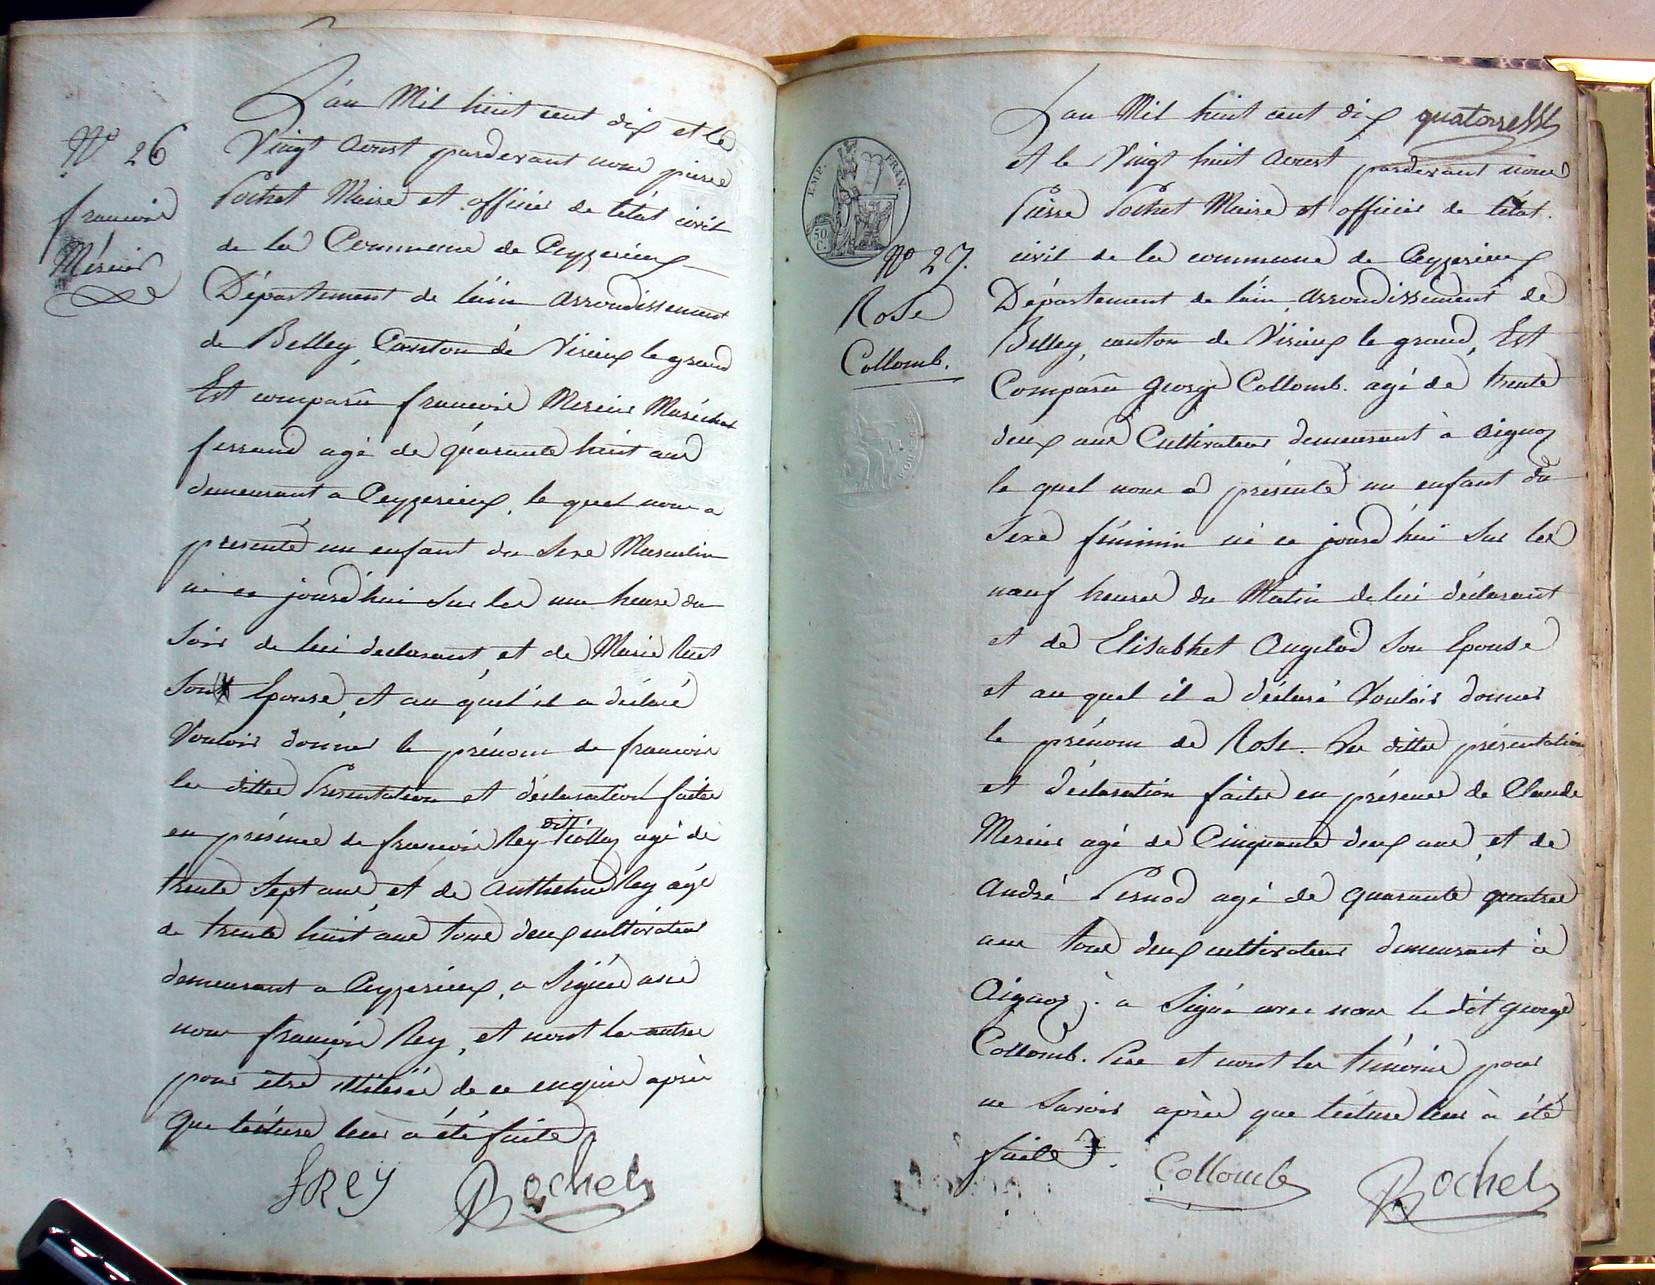 N° 26
francois
Mercier
L'an Mil huit cent dix et le
Vingt Aoust pardevant nous pierre
Pochet Maire et officier de létat civil
de la Commune de Ceyzerieux
Département de lain arrondissement
de Belley, Canton de Virieux le grand
Est comparu francois Mercier Maréchal
ferrand agé de quarante huit ans
demeurant a Ceyzerieux, le quel nous a
presenté un enfant du Sexe Masculin
né ce jourdhui Sur les une heure du
Soir de lui declarant, et de Marie
Son Epouse, et au quel il a déclaré
Vouloir donner le prénom de francois
les dittes Presentation et déclaration faites
en présence de francois Rey dit agé de
trente Sept ans, et de Anthelme Rey agé
de trente huit ans tous deux cultivateurs
demeurant a Ceyzerieux, a Signé avec
nous françois Rey, et nont les autres
pour être illitérés de ce enquis après
que lecture leur a été faite
fREY Pochet
EMP. FRAN.
50 C.
N° 27.
Rose
Collomb.
L'an Mil huit cent dix
et le Vingt huit Aoust pardevant nous
Pierre Pochet Maire et officier de létat.
civil de la commune de Ceyzerieux
Département de lain arrondissement de
Belley, canton de Virieux le grand, Est
Comparu george Collomb. agé de trente
deux ans Cultivateur demeurant à Aignoz
le quel nous a présenté un enfant du
Sexe féminin né ce jourdhui Sur les
neuf heures du Matin de lui déclarant
et de Elisabhet Son Epouse
et au quel il a déclaré Vouloir donner
le prénom de Rose. Les dittes présentation
et déclaration faites en présence de Claude
Mercier agé de Cinquante deux ans, et de
André Pernod agé de quarante quatre
ans tous deux cultivateurs demeurant à
Aignoz; a Signé avec nous le dit george
Collomb. Père et nont les témoins pour
ne Savoir après que lecture leur à été
faite.
Collomb Pochet